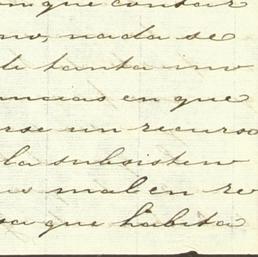 que contar
no, nada se
de tanta mo
ancias en que
rse un recurso
la subsisten
us mal en re
sa que habita